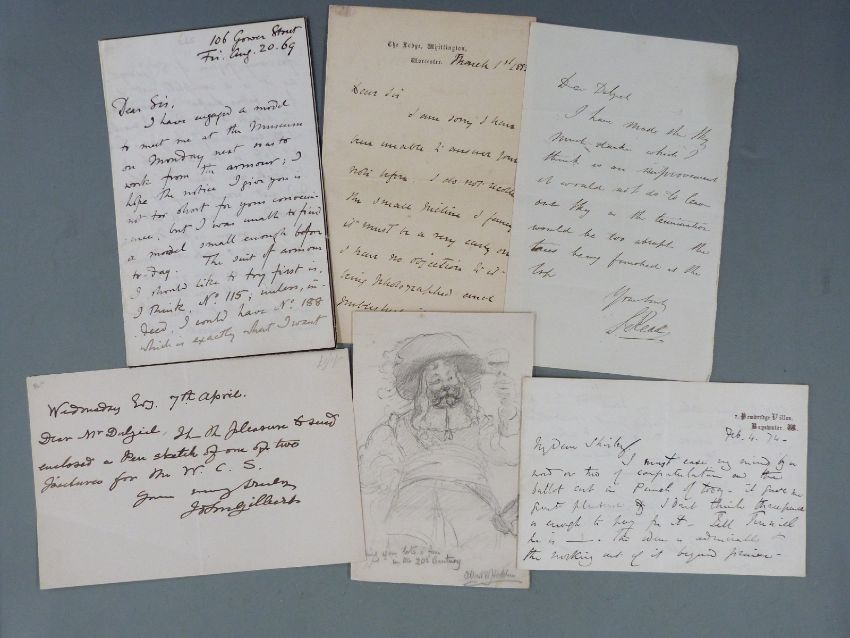 106 Gower Street
Fri. Aug. 20. 69
Dear Sir,
I have engaged a model
to meet me at the Museum
on Monday next was to
work from the armour; I
hope the notice I give you is
not too short for your conveni-
ence, but I was unable to find
a model small enough before
to-day. The suit of armour
I should like to try first is,
I think, No. 115; unless, in-
deed, I would have No. 188
which is exactly what I want
The Lodge, Whittington,
Worcester. March 1st
Dear Sir
I am sorry I have
been unable to answer your
note before. I do not
the small I fancy
it must be a very early one
I have no objection to it
being photographed and
Dear Dalziel
I have made the sky
much darker which I
think is an improvement
it would not do to leave
one sky as the termination
would be too abrupt the
trees being finished at the
top
Yours truly
Wednesday Evg. 7th April.
Dear Mr Dalziel, I have the pleasure to send
enclosed a Pen sketch of one of my two
pictures for the W. C. S.
Yours very truly
John Gilbert
in the 20th Century
2, Pembridge Villas,
Bayswater, W.
Feb. 4. 74
My Dear Shirley
I must ease my mind by a
word or two of congratulation on the
cut in Punch of today. it gave me
great pleasure & I don't think threepence
is enough to pay for it. Tell Tenniel
he is ___. The idea is admirable &
the working out of it beyond praise.